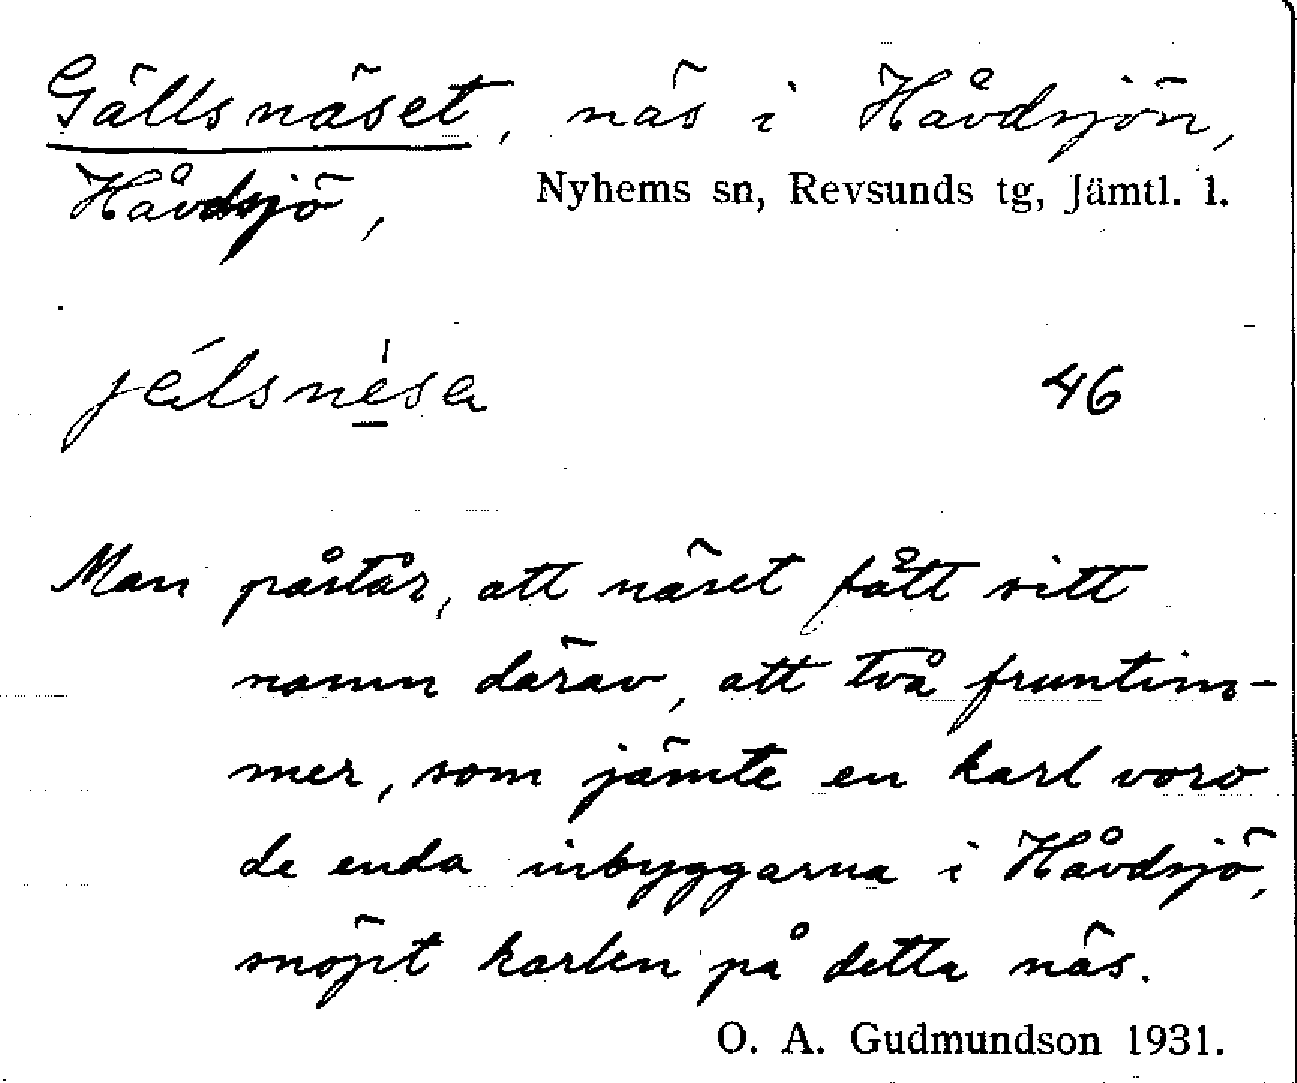 Gällsnäset, näs i Håvdsjön,
Håvdsjö, Nyhems sn, Revsunds tg, Jämtl. l.
jélsnésa 46
Man påstår, att näset fått sitt
namn därav, att två fruntim-
mer, som jämte en karl voro
de enda inbyggarna i Håvdsjö,
snöpt karlen på detta näs.
O. A. Gudmundson 1931.